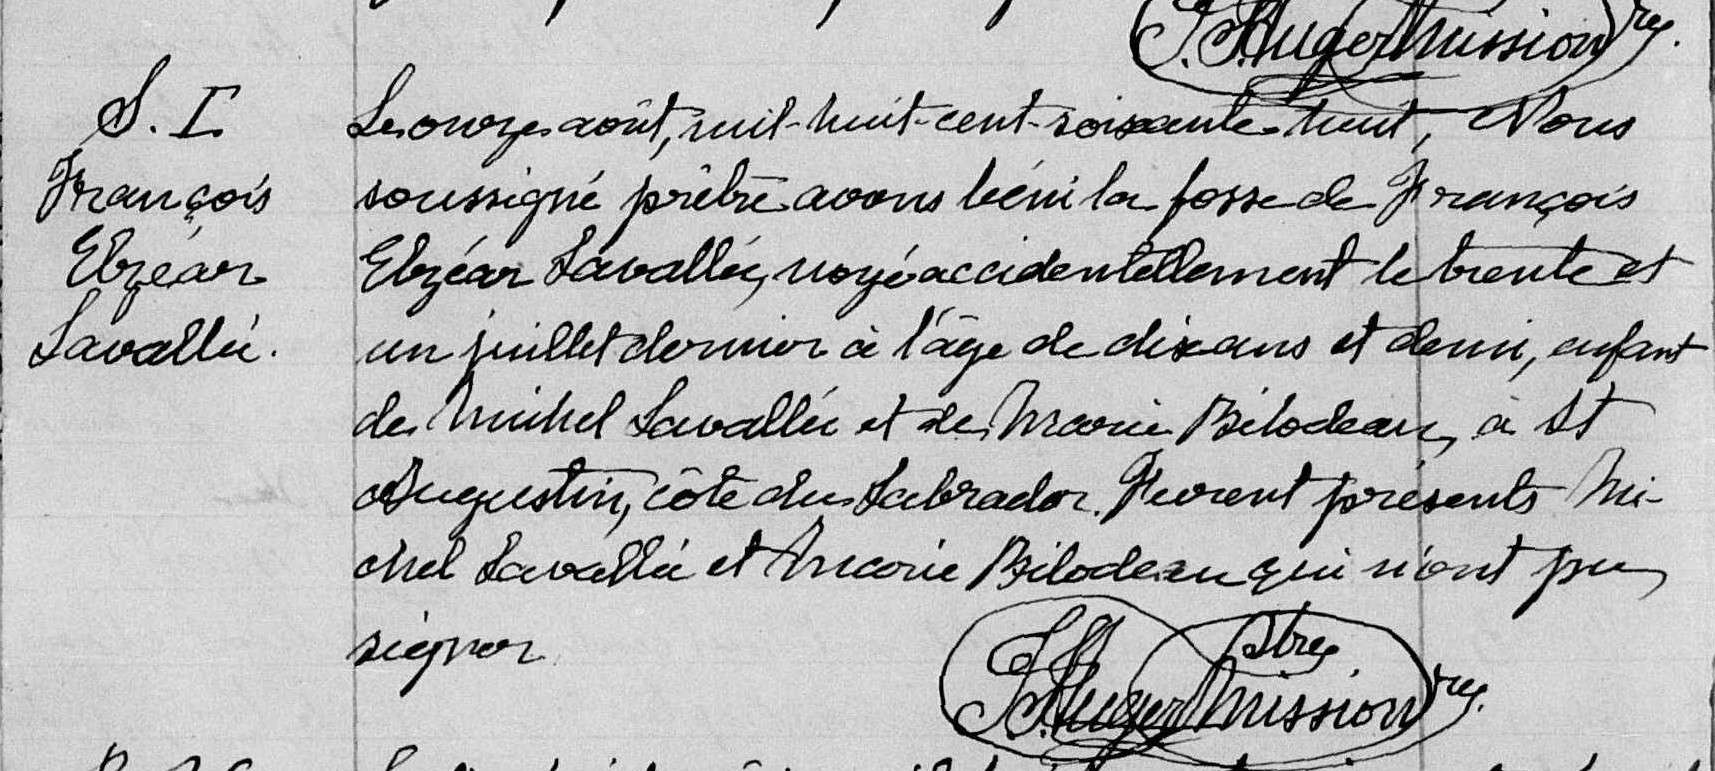 J. B. Auger Missionry.
S. I.
François
Elzéar
Lavallée.
Le onze août, mil-huit-cent-soixante-huit, Nous
soussigné prêtre avons béni la fosse de François
Elzéar Lavallée, noyé accidentellement le trente et
un juillet dernier à l'âge de dix ans et demi, enfant
de Michel Lavallée et de Marie Bilodeau, à St
Augustin, côte du Labrador. Furent présents Mi-
chel Lavallée et Marie Bilodeau qui n'ont pu
signer
Ptre
Auger Missionry.